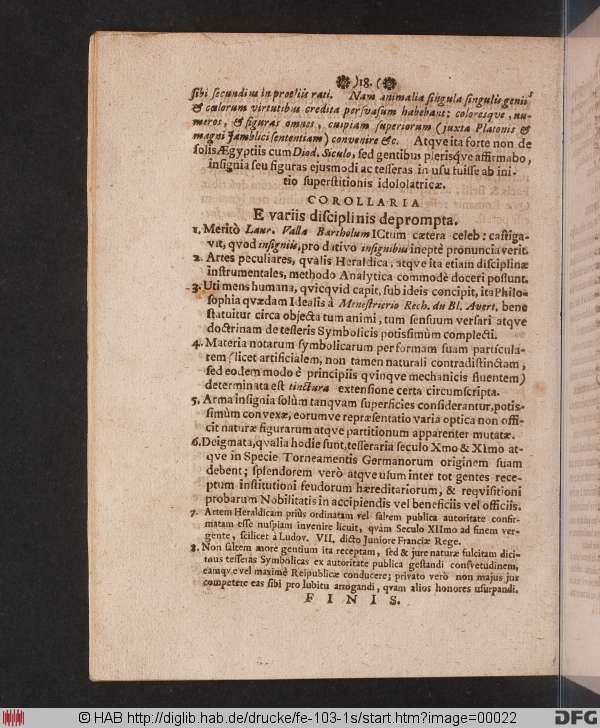 )18.(
sibi secundiu in proeliis rati. Nam animalia singula singulis geniis
& cœlorum virtutibus credita persvasum habebant; coloresqve, nu-
meros, & figuras omnes, cuipiam superiorum (juxta Platonis &
magni Jamblici sententiam) convenire &c. Atqve ita forte non de
solis Ægyptiis cum Diod. Siculo, sed gentibus plerisqve affirmabo,
insignia seu figuras ejusmodi ac tesseras in usu fuisse ab ini-
tio superstitionis idololatricæ.
COROLLARIA
E variis disciplinis deprompta.
1. Meritò Laur. Valla Bartholum ICtum cætera celeb: castiga-
vit, qvod insigniis, pro dativo insignibus ineptè pronunciaverit.
2. Artes peculiares, qvalis Heraldica, atqve ita etiam disciplinæ
instrumentales, methodo Analytica commodè doceri possunt.
3. Uti mens humana, qvicqvid capit, sub ideis concipit, ita Philo-
sophia qvædam Idealis à Menestrierio Rech. du Bl. Avert. bene
statuitur circa objecta tum animi, tum sensuum versari atqve
doctrinam de tesseris Symbolicis potissimùm complecti.
4. Materia notarum symbolicarum per formam suam particula-
rem (licet artificialem, non tamen naturali contradistinctam,
sed eodem modo è principiis qvinqve mechanicis fluentem)
determinata est tinctura extensione certa circumscripta.
5. Arma insignia solùm tanqvam superficies considerantur, potis-
simùm convexæ, eorumve repræsentatio varia optica non offi-
cit naturæ figurarum atqve partitionum apparenter mutatæ.
6. Deigmata, qvalia hodie sunt, tesseraria seculo Xmo & XImo at-
qve in Specie Torneamentis Germanorum originem suam
debent; splendorem verò atqve usum inter tot gentes rece-
ptum institutioni feudorum hæreditariorum, & reqvisitioni
probarum Nobilitatis in accipiendis vel beneficiis vel officiis.
7. Artem Heraldicam priùs ordinatam vel saltem publica autoritate confir-
matam esse nuspiam invenire licuit, qvàm Seculo XIImo ad finem ver-
gente, scilicet à Ludov. VII. dicto Juniore Franciæ Rege.
8. Non saltem more gentium ita receptam, sed & jure naturæ fulcitam dici-
mus tesseras Symbolicas ex autoritate publica gestandi consvetudinem,
eamqve vel maximè Reipublicæ conducere; privato verò non majus jus
competere eas sibi pro lubitu arrogandi, qvam alios honores usurpandi.
FINIS.
© HAB http://diglib.hab.de/drucke/fe-103-1s/start.htm?image=00022
DFG